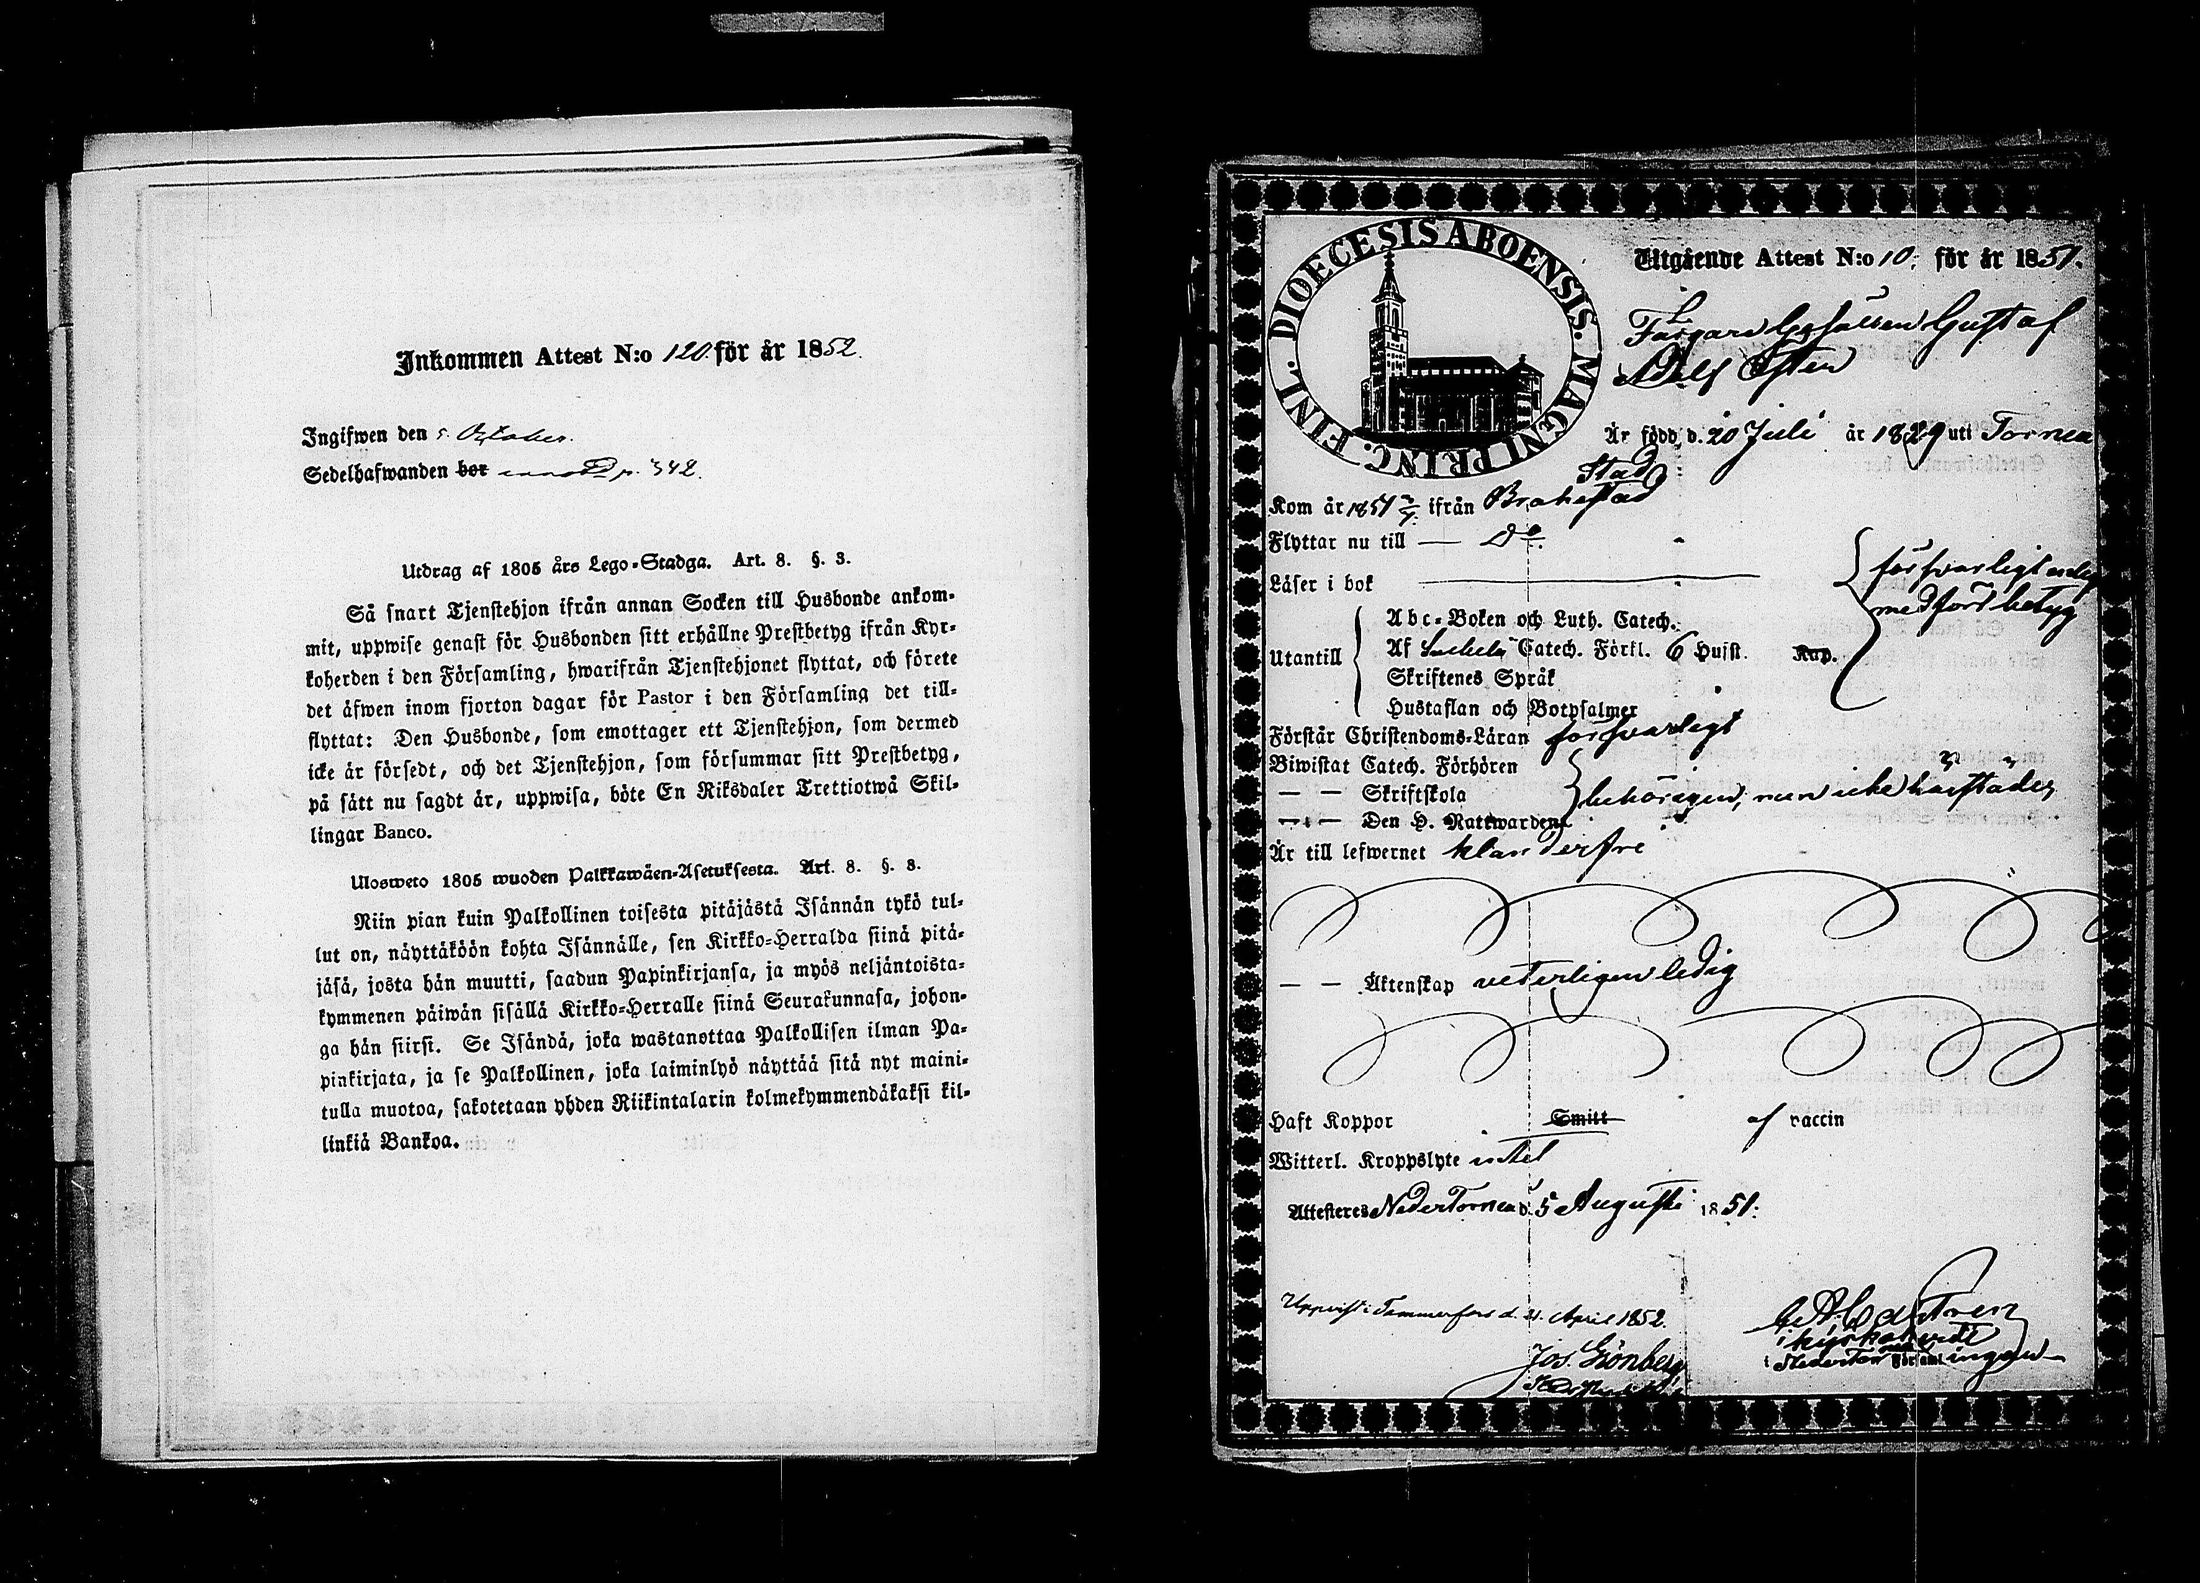 Inkommen Attest N:o 120. för år 1852.
Ingifwen den 5. October.
Sedelhafwanden bor p. 342.
Utdrag af 1805 års Lego-Stadga. Art. 8. §. 3.
Så snart Tjenstehjon ifrån annan Socken till Husbonde ankom-
mit, uppwise genast för Husbonden sitt erhållne Prestbetyg ifrån Kyr-
koherden i den Församling, hwarifrån Tjenstehjonet flyttat, och förete
det äfwen inom fjorton dagar för Pastor i den Församling det till-
flyttat: Den Husbonde, som emottager ett Tjenstehjon, som dermed
icke är försedt, och det Tjenstehjon, som försummar sitt Prestbetyg,
på sätt nu sagdt är, uppwisa, böte En Riksdaler Trettiotwå Skil-
lingar Banco.
Ulosweto 1805 wuoden Palkkawäen-Asetuksesta. Art. 8. §. 3.
Niin pian kuin Palkollinen toisesta pitäjästä Isännän tykö tul-
lut on, näyttäköön kohta Isännälle, sen Kirkko-Herralda siinä pitä-
jäsä, josta hän muutti, saadun Papinkirjansa, ja myös neljäntoista-
kymmenen päiwän sisällä Kirkko-Herralle siinä Seurakunnasa, johon-
ga hän siirsi. Se Isändä, joka wastanottaa Palkollisen ilman Pa-
pinkirjata, ja se Palkollinen, joka laiminlyö näyttää sitä nyt maini-
tulla muotoa, sakotetaan yhden Riikintalarin kolmekymmendäkaksi kil-
linkiä Bankoa.
DIOECESIS ABOENSIS. MAGNI PRINC. FINL.
Utgående Attest N:o 10. för år 1851.
Färgare Gesällen Gustaf
Adolf Östen
Är född d. 20 Juli år 1829 uti Torneå
Stad
Kom år 1851 ifrån Brahestad
Flyttar nu till — Do.
Läser i bok
försvarligt enligt
medförd betyg
Utantill
Abc-Boken och Luth. Catech.
Af Catech. Förkl. 6 Hufst. Kap.
Skriftenes Språk
Hustaflan och Botpsalmer
Förstår Christendoms-Läran försvarligt
Biwistat Catech. Förhören
— — Skriftskola
behörigen, men icke härstädes
— — Den H. Nattwarden
Är till lefwernet klanderfri
— — Äktenskap veterligen ledig
Haft Koppor Smitt af vaccin
Witterl. Kroppslyte intet
Attesteres NederTorneå d. 5 Augusti 1851.
Uppvist i Tammerfors d. 21. April 1852.
Jos. Grönberg
C. A. Castren
i kyrkoherde
i NederTorneå Församlingen